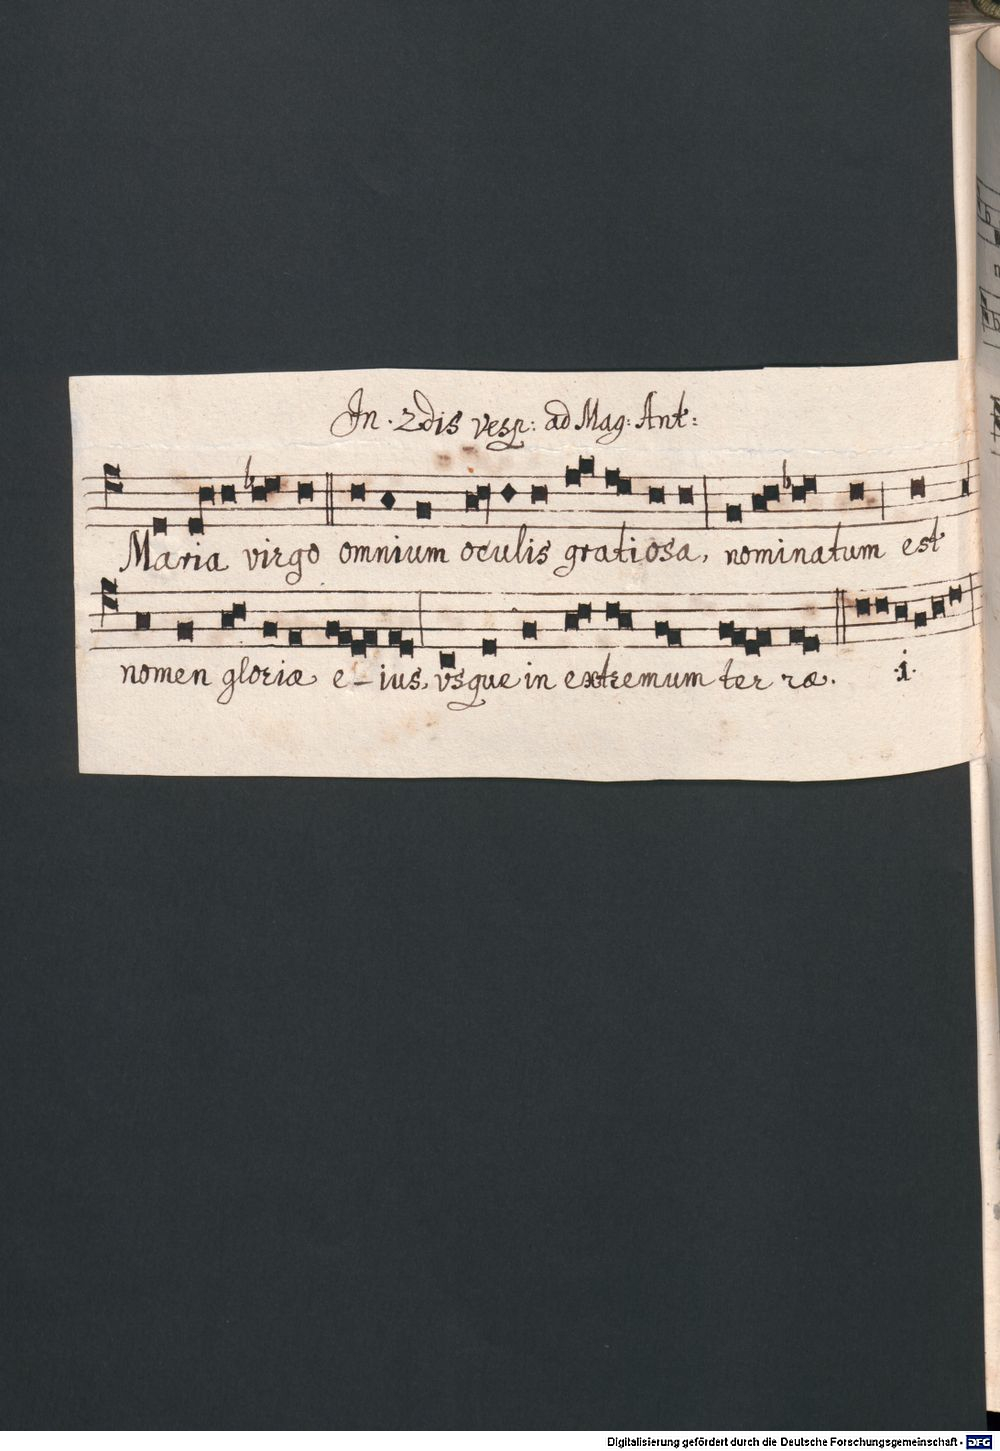 In. 2dis Vesp: ad Mag: Ant:
Maria virgo omnium oculis gratiosa, nominatum est
nomen gloriæ e-ius, vsque in extremum ter ræ.
i.
Digitalisierung gefördert durch die Deutsche Forschungsgemeinschaft - DFG